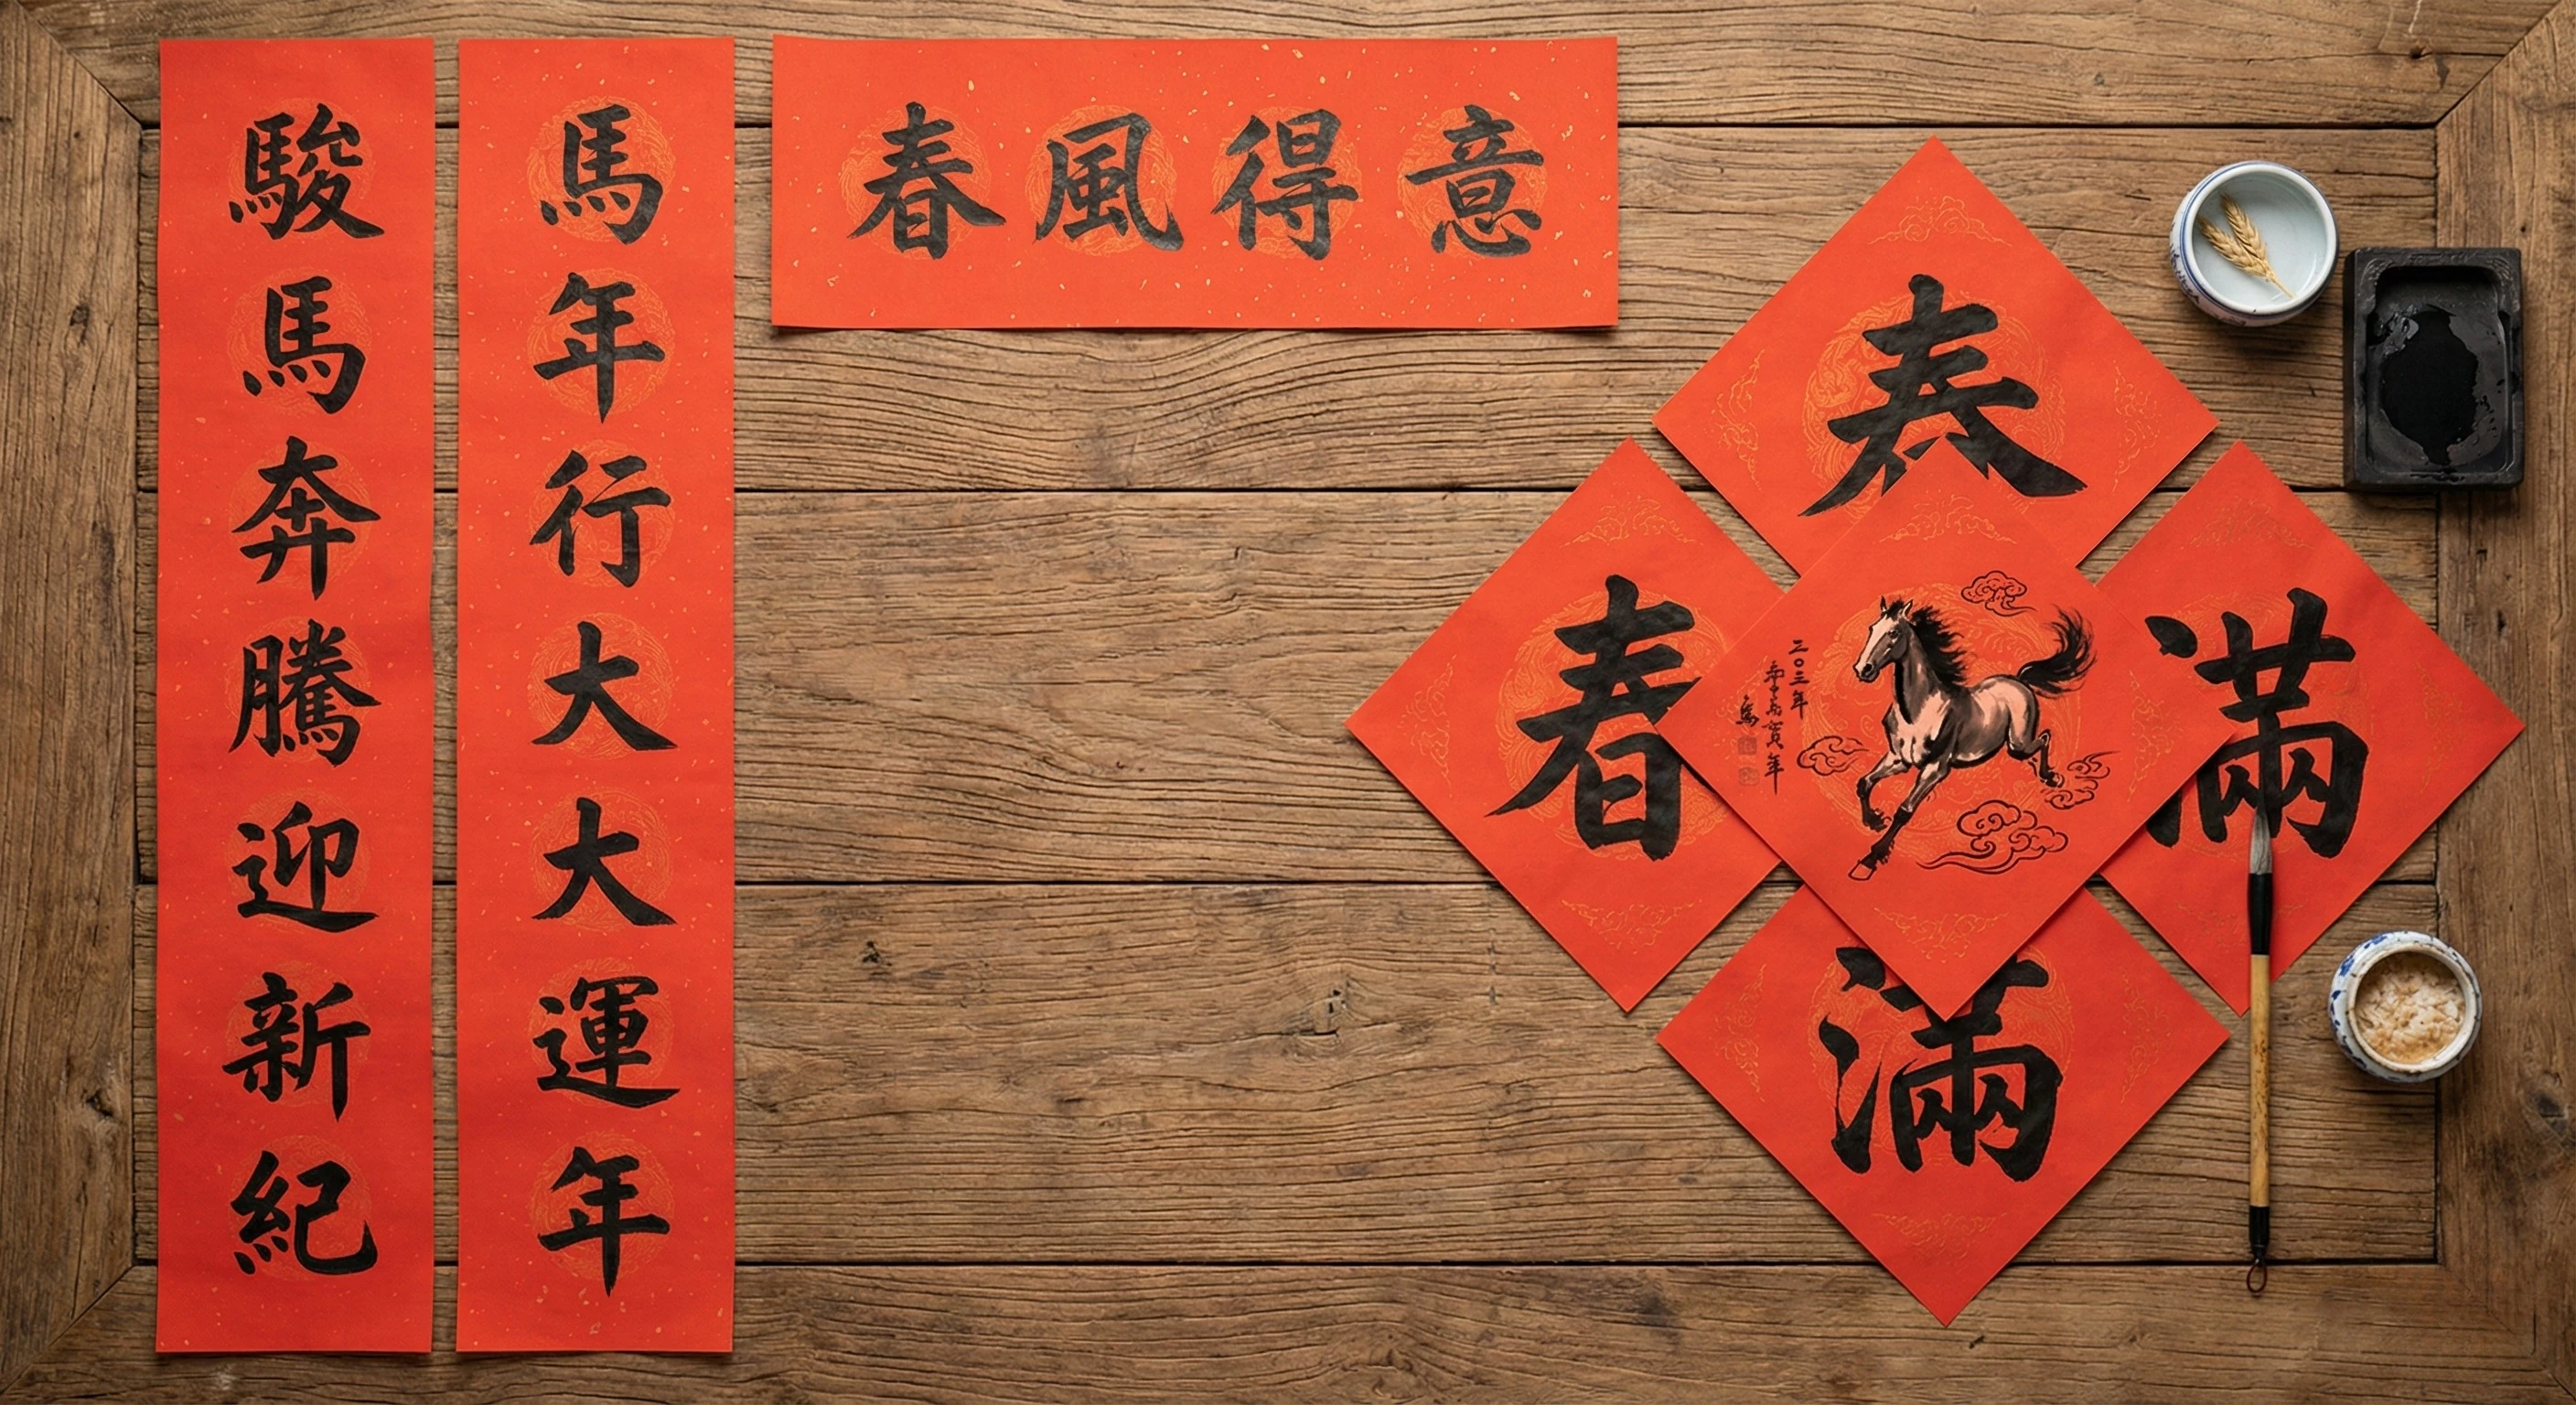 駿馬奔騰迎新紀
馬年行大大運年
春風得意
春
春
滿
滿
二〇三年
賀年